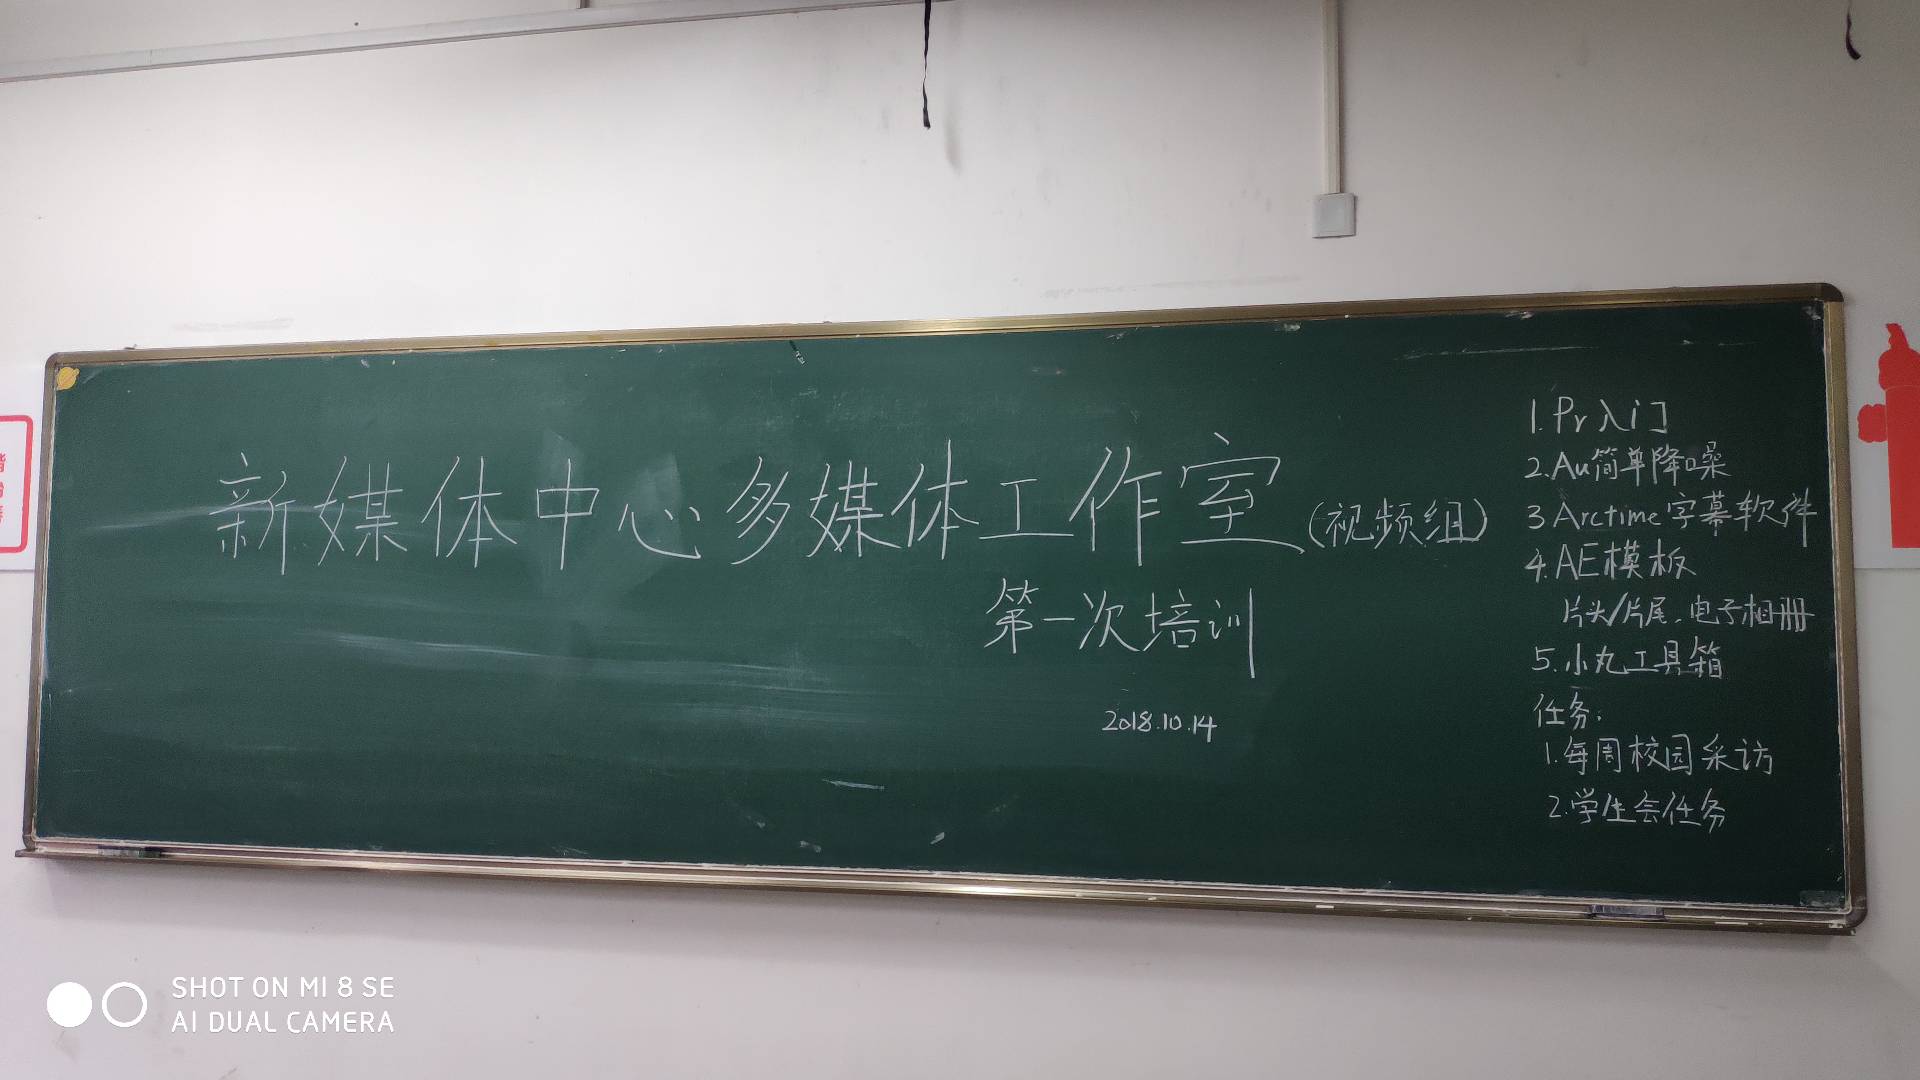 新媒体中心多媒体工作室(视频组)
第一次培训
2018.10.14
1.Pr入门
2.Au简单降噪
3 Arctime字幕软件
4.AE模板
片头/片尾、电子相册
5.小丸工具箱
任务:
1.每周校园采访
2.学生会任务
SHOT ON MI 8 SE
AI DUAL CAMERA